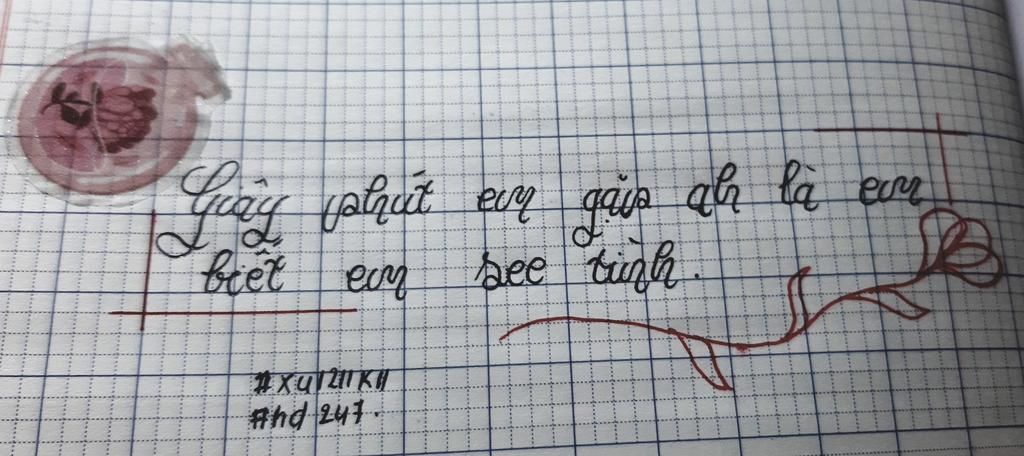 Giây phút em gặp anh là em
biết em see tình.
#hd 247.